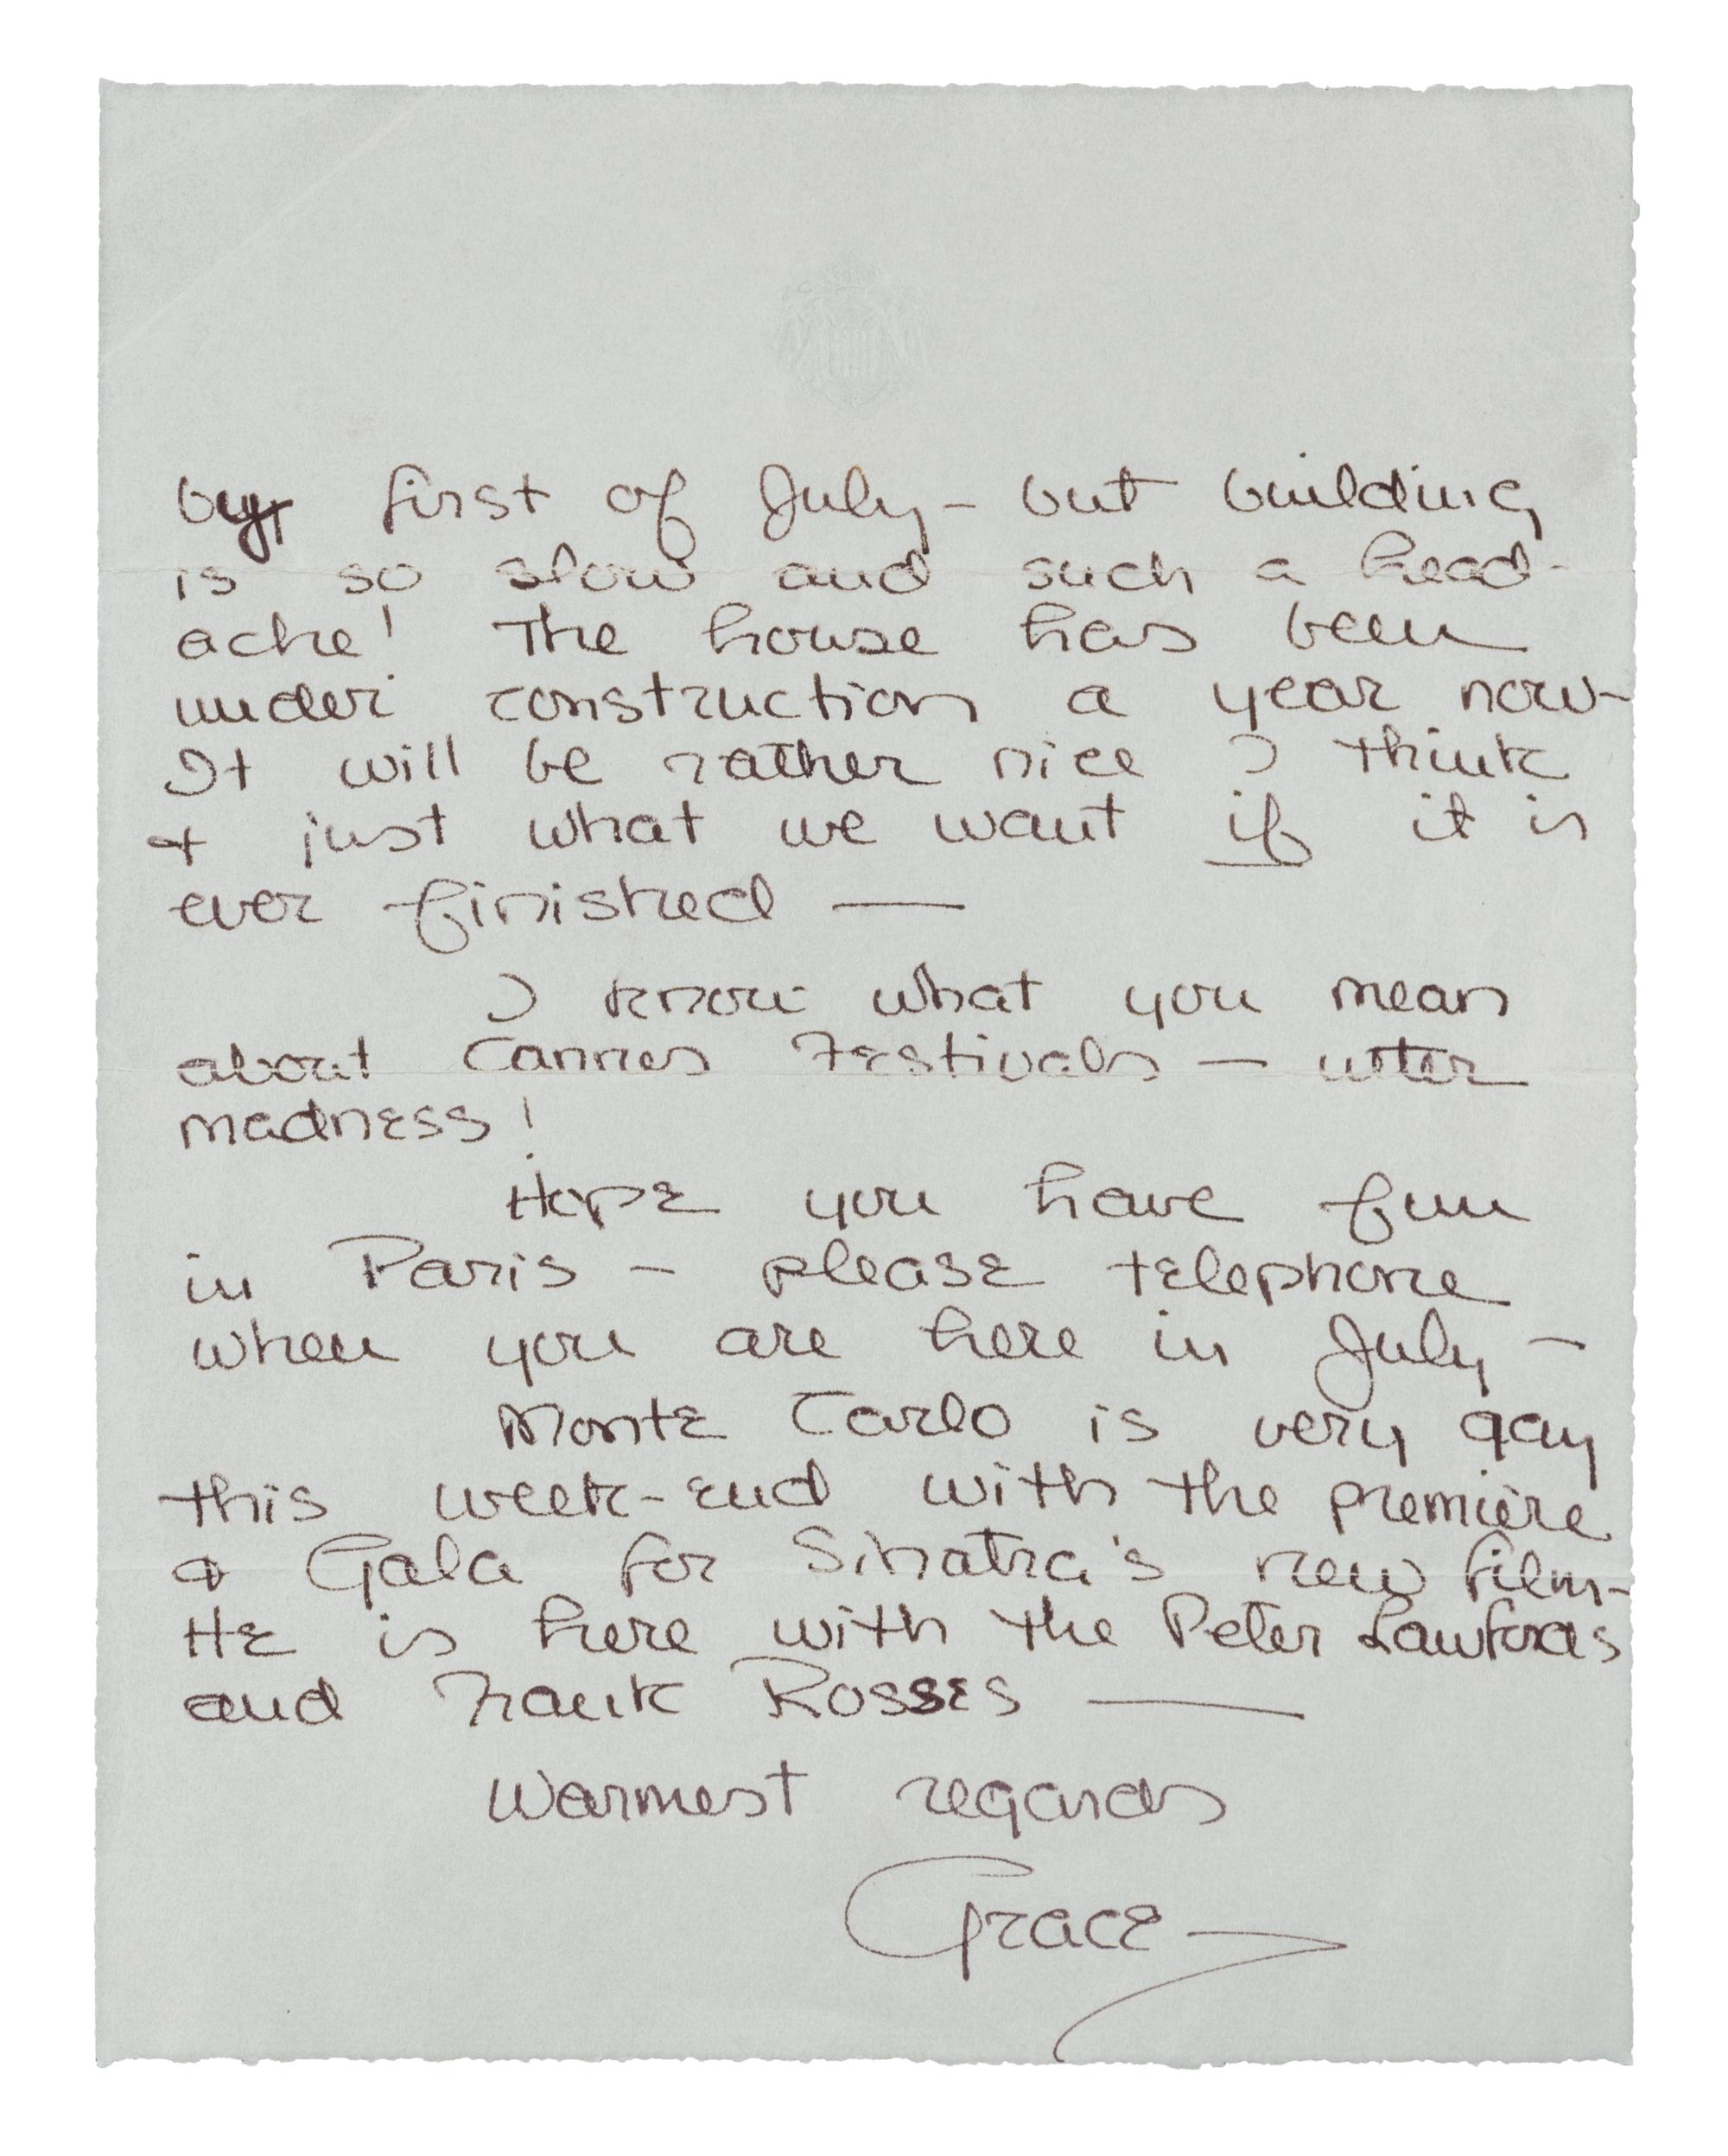 by first of July - but building
is so slow and such a head-
ache! The house has been
under construction a year now-
It will be rather nice I think
& just what we want if it is
ever finished —
I know what you mean
about Cannes Festivals — utter
madness!
Hope you have fun
in Paris - please telephone
when you are here in July -
Monte Carlo is very gay
this week-end with the premiere
& Gala for Sinatra's new film-
He is here with the Peter Lawfords
and Frank Rosses —
Warmest regards
Grace